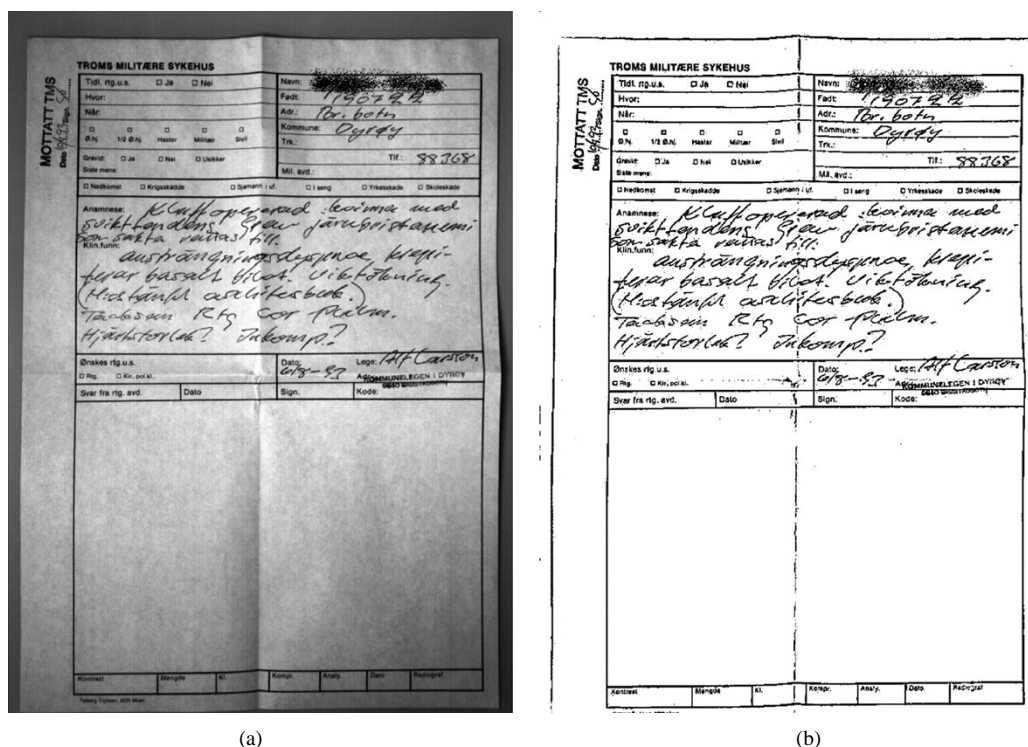 TROMS MILITÆRE SYKEHUS
Tidl. rtg.u.s. Ja Nei
Hvor:
Når:
Ø.hj. 1/2 Ø.hj. Haster Militær Sivil
Gravid: Ja Nei Usikker
Siste mens:
Navn:
Født: 190722
Adr.: botn
Kommune: Dyrøy
Trk.:
Tlf.: 88368
Mil. avd.:
MOTTATT TMS
Dato Sign.
Nedkomst Krigsskadde Sjømann i ut. I seng Yrkesskade Skoleskade
Anamnese: Klaffopererad kvinna med
svikttendens. Grav järnbristanemi
som sakta rättas till.
Klin.funn:
ansträngningsdyspnoe, krepi-
terar basalt bilat. Viktökning.
(Misstänkt
Tacksam Rtg cor pulm.
Hjärtstorlek? Inkomp.?
Ønskes rtg.u.s.
Rtg. Kir. pol.kl.
Dato: 6/8-93
Lege: Alf Carsson
Adr.:
KOMMUNELEGEN I DYRØY
Svar fra rtg. avd. Dato Sign. Kode:
Kontrast Mengde Kl. Kompr. Analy. Dato Radiograf
(a)
TROMS MILITÆRE SYKEHUS
Tidl. rtg.u.s. Ja Nei
Hvor:
Når:
Ø.hj. 1/2 Ø.hj. Haster Militær Sivil
Gravid: Ja Nei Usikker
Siste mens:
Navn:
Født: 190722
Adr.: botn
Kommune: Dyrøy
Trk.:
Tlf.: 88368
Mil. avd.:
MOTTATT TMS
Dato Sign.
Nedkomst Krigsskadde Sjømann i ut. I seng Yrkesskade Skoleskade
Anamnese: Klaffopererad kvinna med
svikttendens. Grav järnbristanemi
som sakta rättas till.
Klin.funn:
ansträngningsdyspnoe, krepi-
terar basalt bilat. Viktökning.
(Misstänkt
Tacksam Rtg cor pulm.
Hjärtstorlek? Inkomp.?
Ønskes rtg.u.s.
Rtg. Kir. pol.kl.
Dato: 6/8-93
Lege: Alf Carsson
Adr.:
KOMMUNELEGEN I DYRØY
Svar fra rtg. avd. Dato Sign. Kode:
Kontrast Mengde Kl. Kompr. Analy. Dato Radiograf
(b)